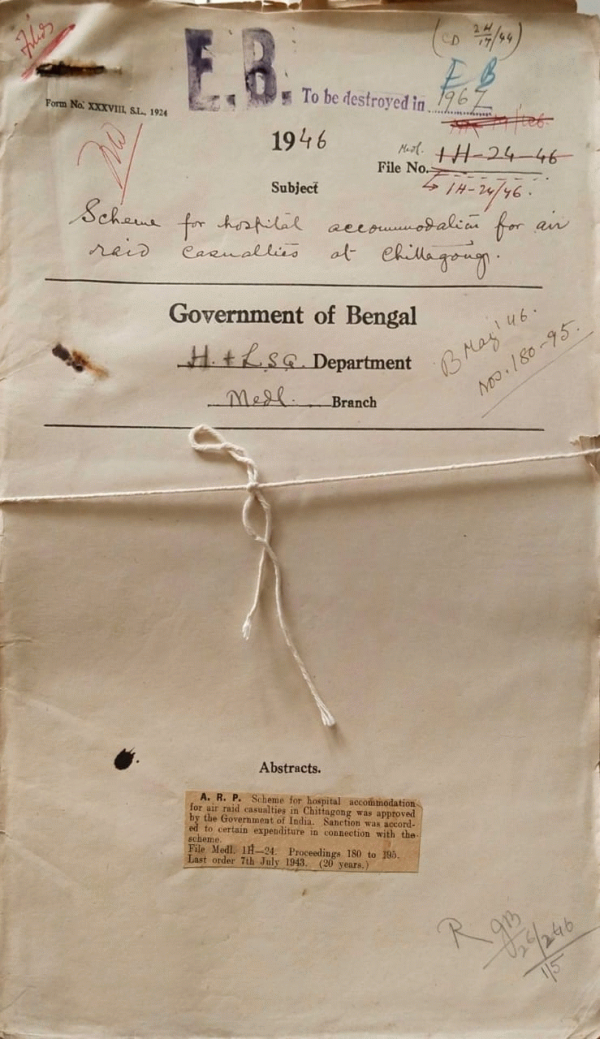 (CD 2H/17/44)
E.B.
E B
To be destroyed in 1967
Form No. XXXVIII, S.L., 1924
1946
Medl.
File No. 1H-24-46
1H-24/46.
Subject
Scheme for hospital accommodation for air
raid casualties at Chittagong.
Government of Bengal
H. & L.S.G. Department
B May '46.
Nos. 180-95.
Medl. Branch
Abstracts.
A. R. P. Scheme for hospital accommodation
for air raid casualties in Chittagong was approved
by the Government of India. Sanction was accord-
ed to certain expenditure in connection with the
scheme.
File Medl. 1H—24. Proceedings 180 to 195.
Last order 7th July 1943. (20 years.)
R